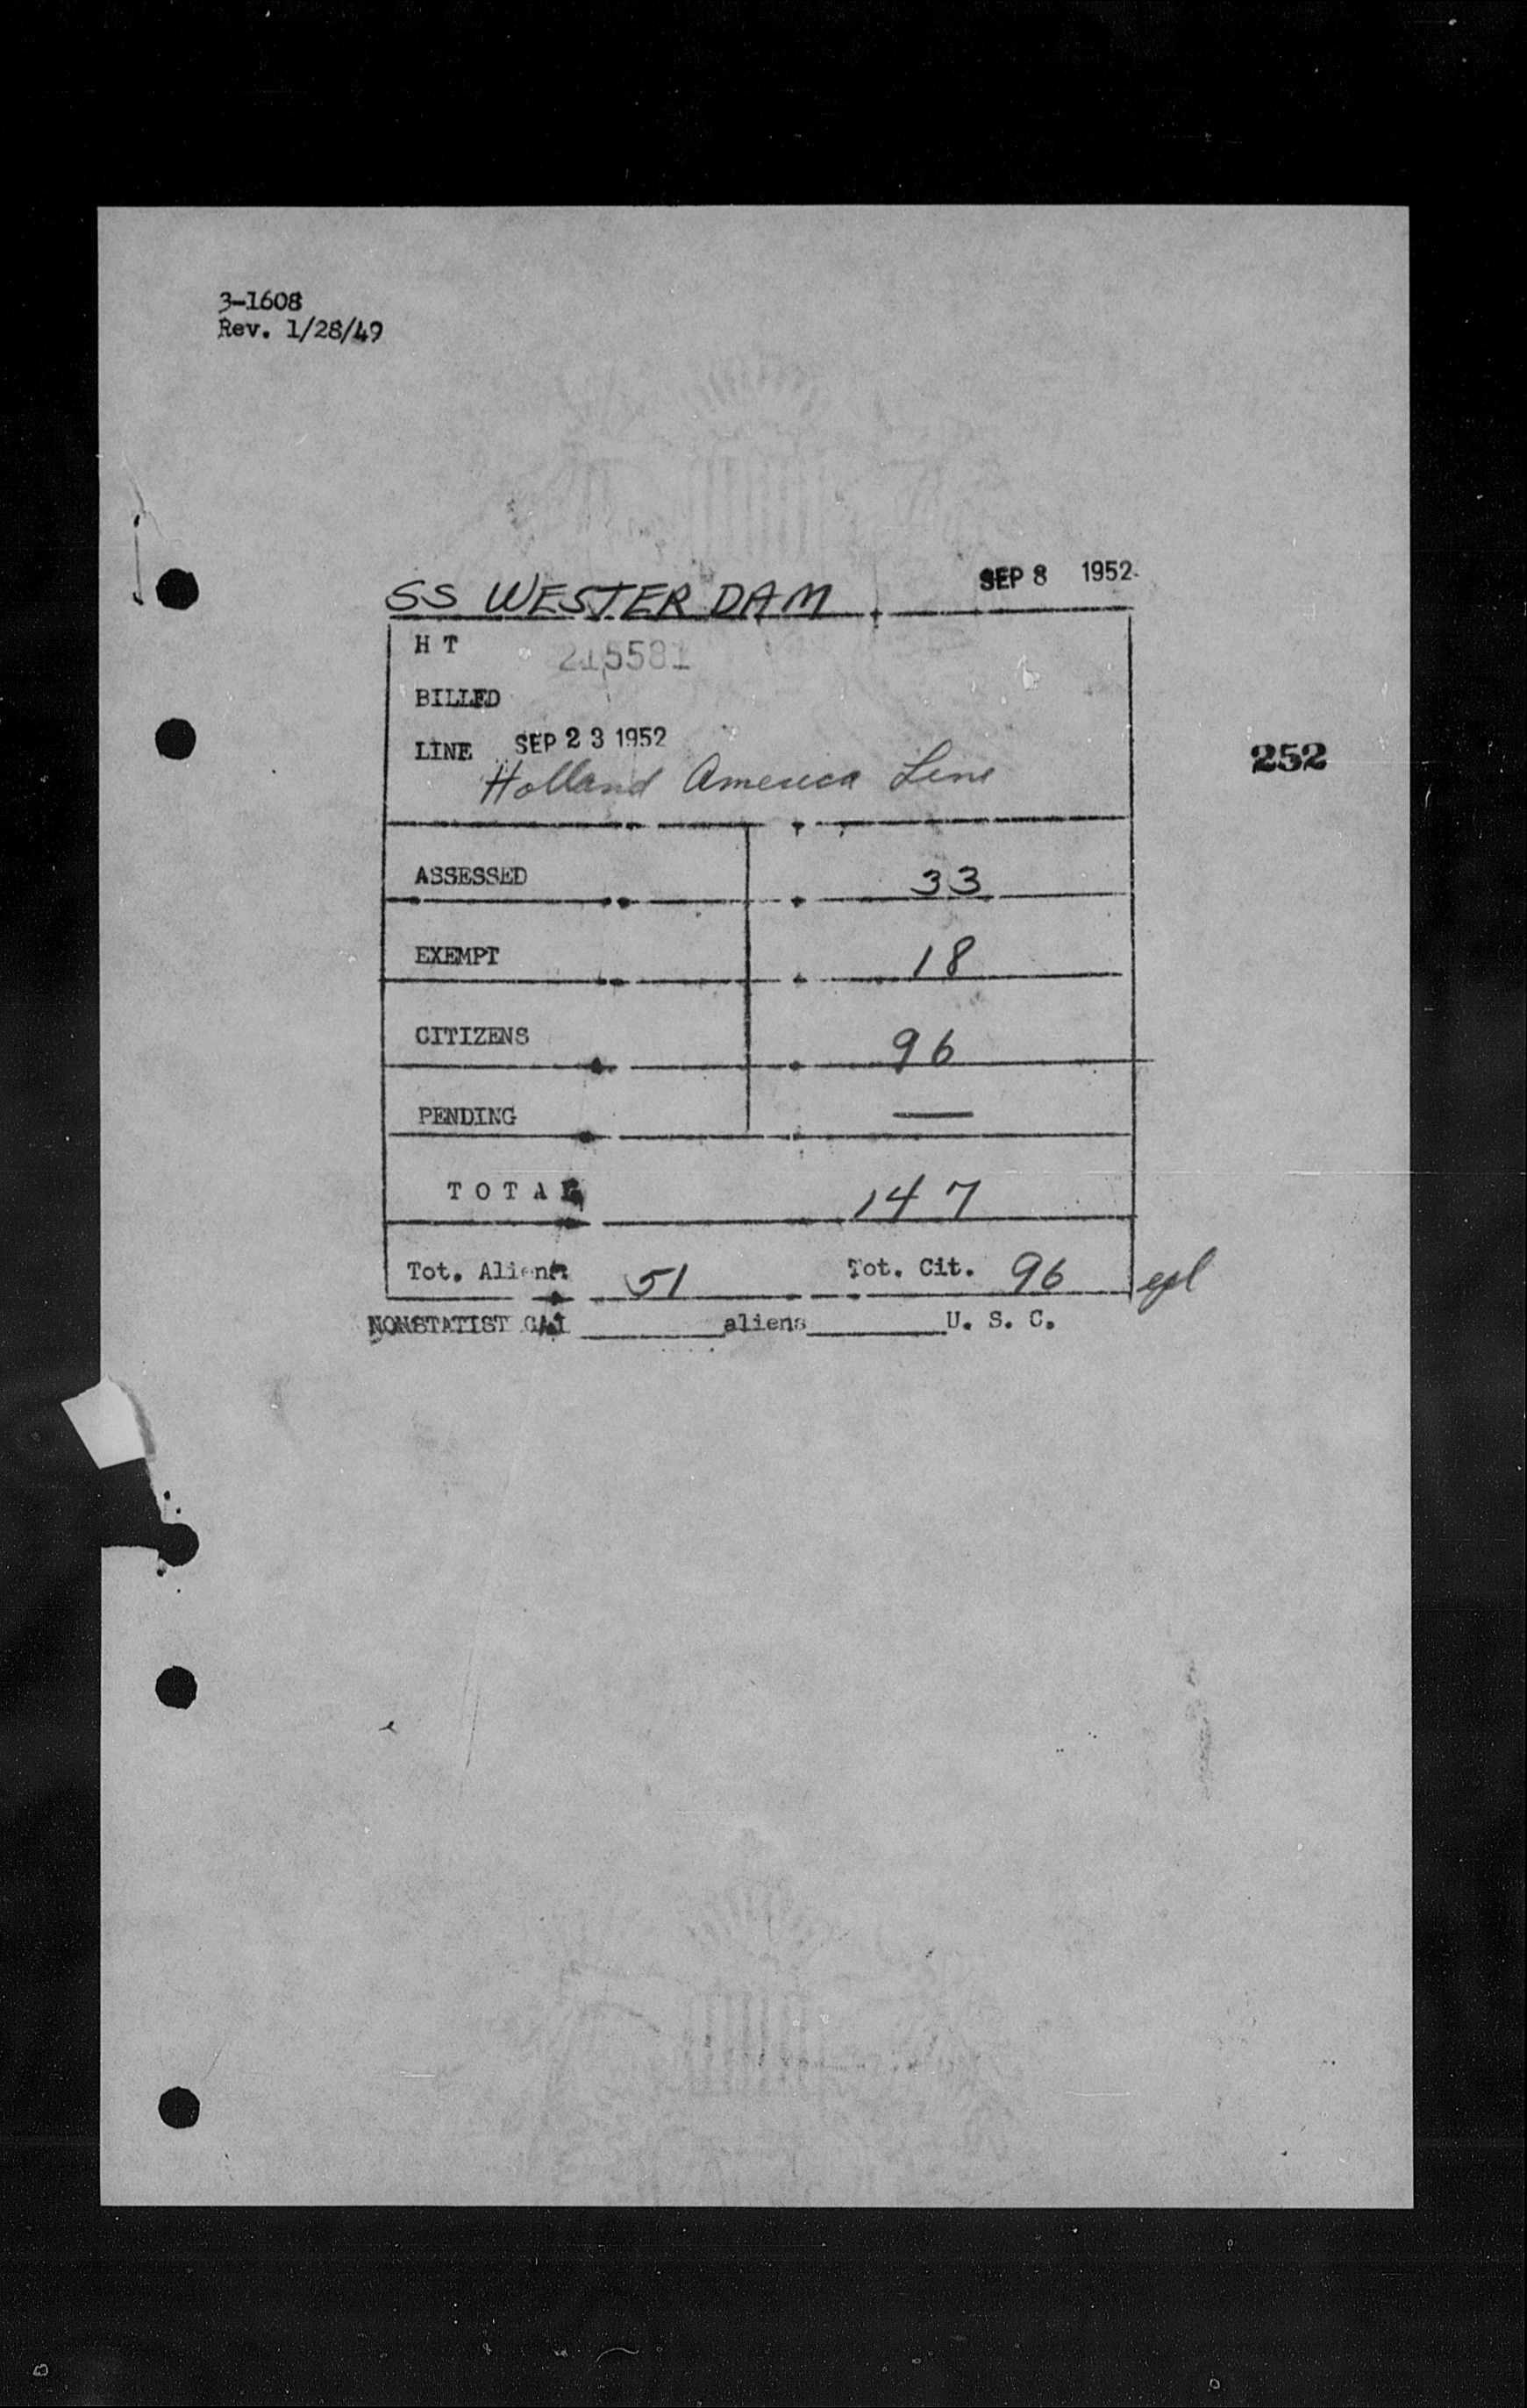 3-1608
Rev. 1/28/49
SS WESTERDAM SEP 8 1952
H T 215581
BILLED
LINE SEP 23 1952
Holland America Line
252
ASSESSED 33
EXEMPT 18
CITIZENS 96
PENDING —
TOTAL 147
Tot. Aliens 51 Tot. Cit. 96
NONSTATISTICAL ________aliens________U. S. C.